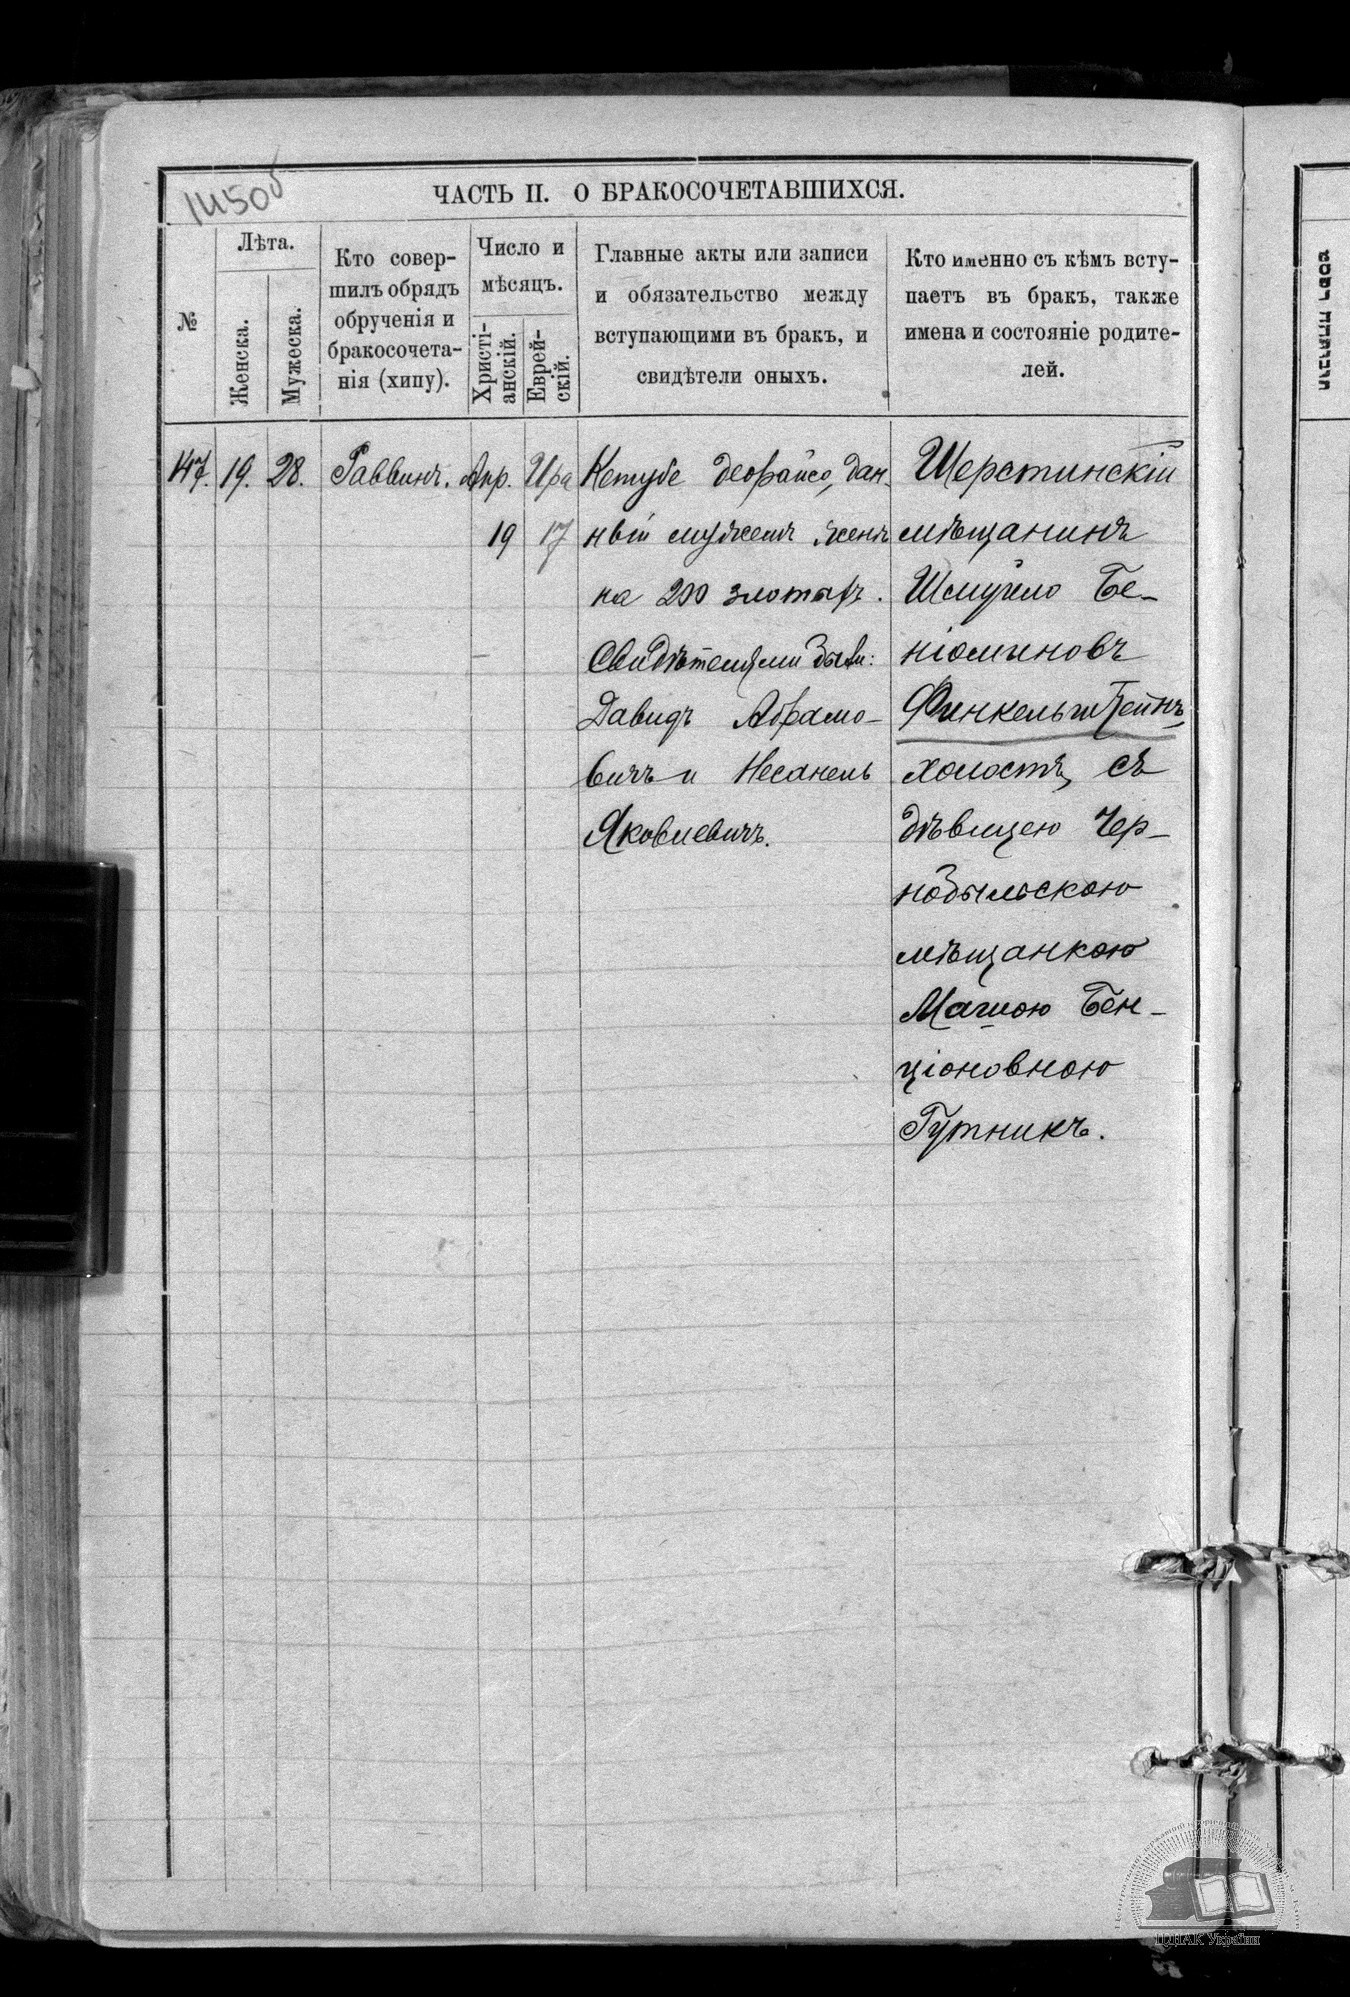 1450б
ЧАСТЬ II. О БРАКОСОЧЕТАВШИХСЯ.
№
Лѣта.
Женска.
Мужеска.
Кто совер-
шилъ обрядъ
обрученія и
бракосочета-
нія (хипу).
Число и
мѣсяцъ.
Христі-
анскій.
Еврей-
скій.
Главные акты или записи
и обязательство между
вступающими въ бракъ, и
свидѣтели оныхъ.
Кто именно съ кѣмъ всту-
паетъ въ бракъ, также
имена и состояніе родите-
лей.
147. 19. 28. Раввинъ. Апр. Ира
19 17
Кетубе деорайсо, дан-
ный мужемъ женѣ
на 200 злотыхъ.
Свидѣтелями были:
Давидъ Абрамо-
вичъ и Несанель
Яковлевичъ.
Шерстинскій
мѣщанинъ
Шмуйло Бе-
ніоминовъ
Финкельштейнъ,
холостъ, съ
дѣвицею Чер-
нобыльскою
мѣщанкою
Машою Бен-
ціоновною
Гутникъ.
ЦДІАК України